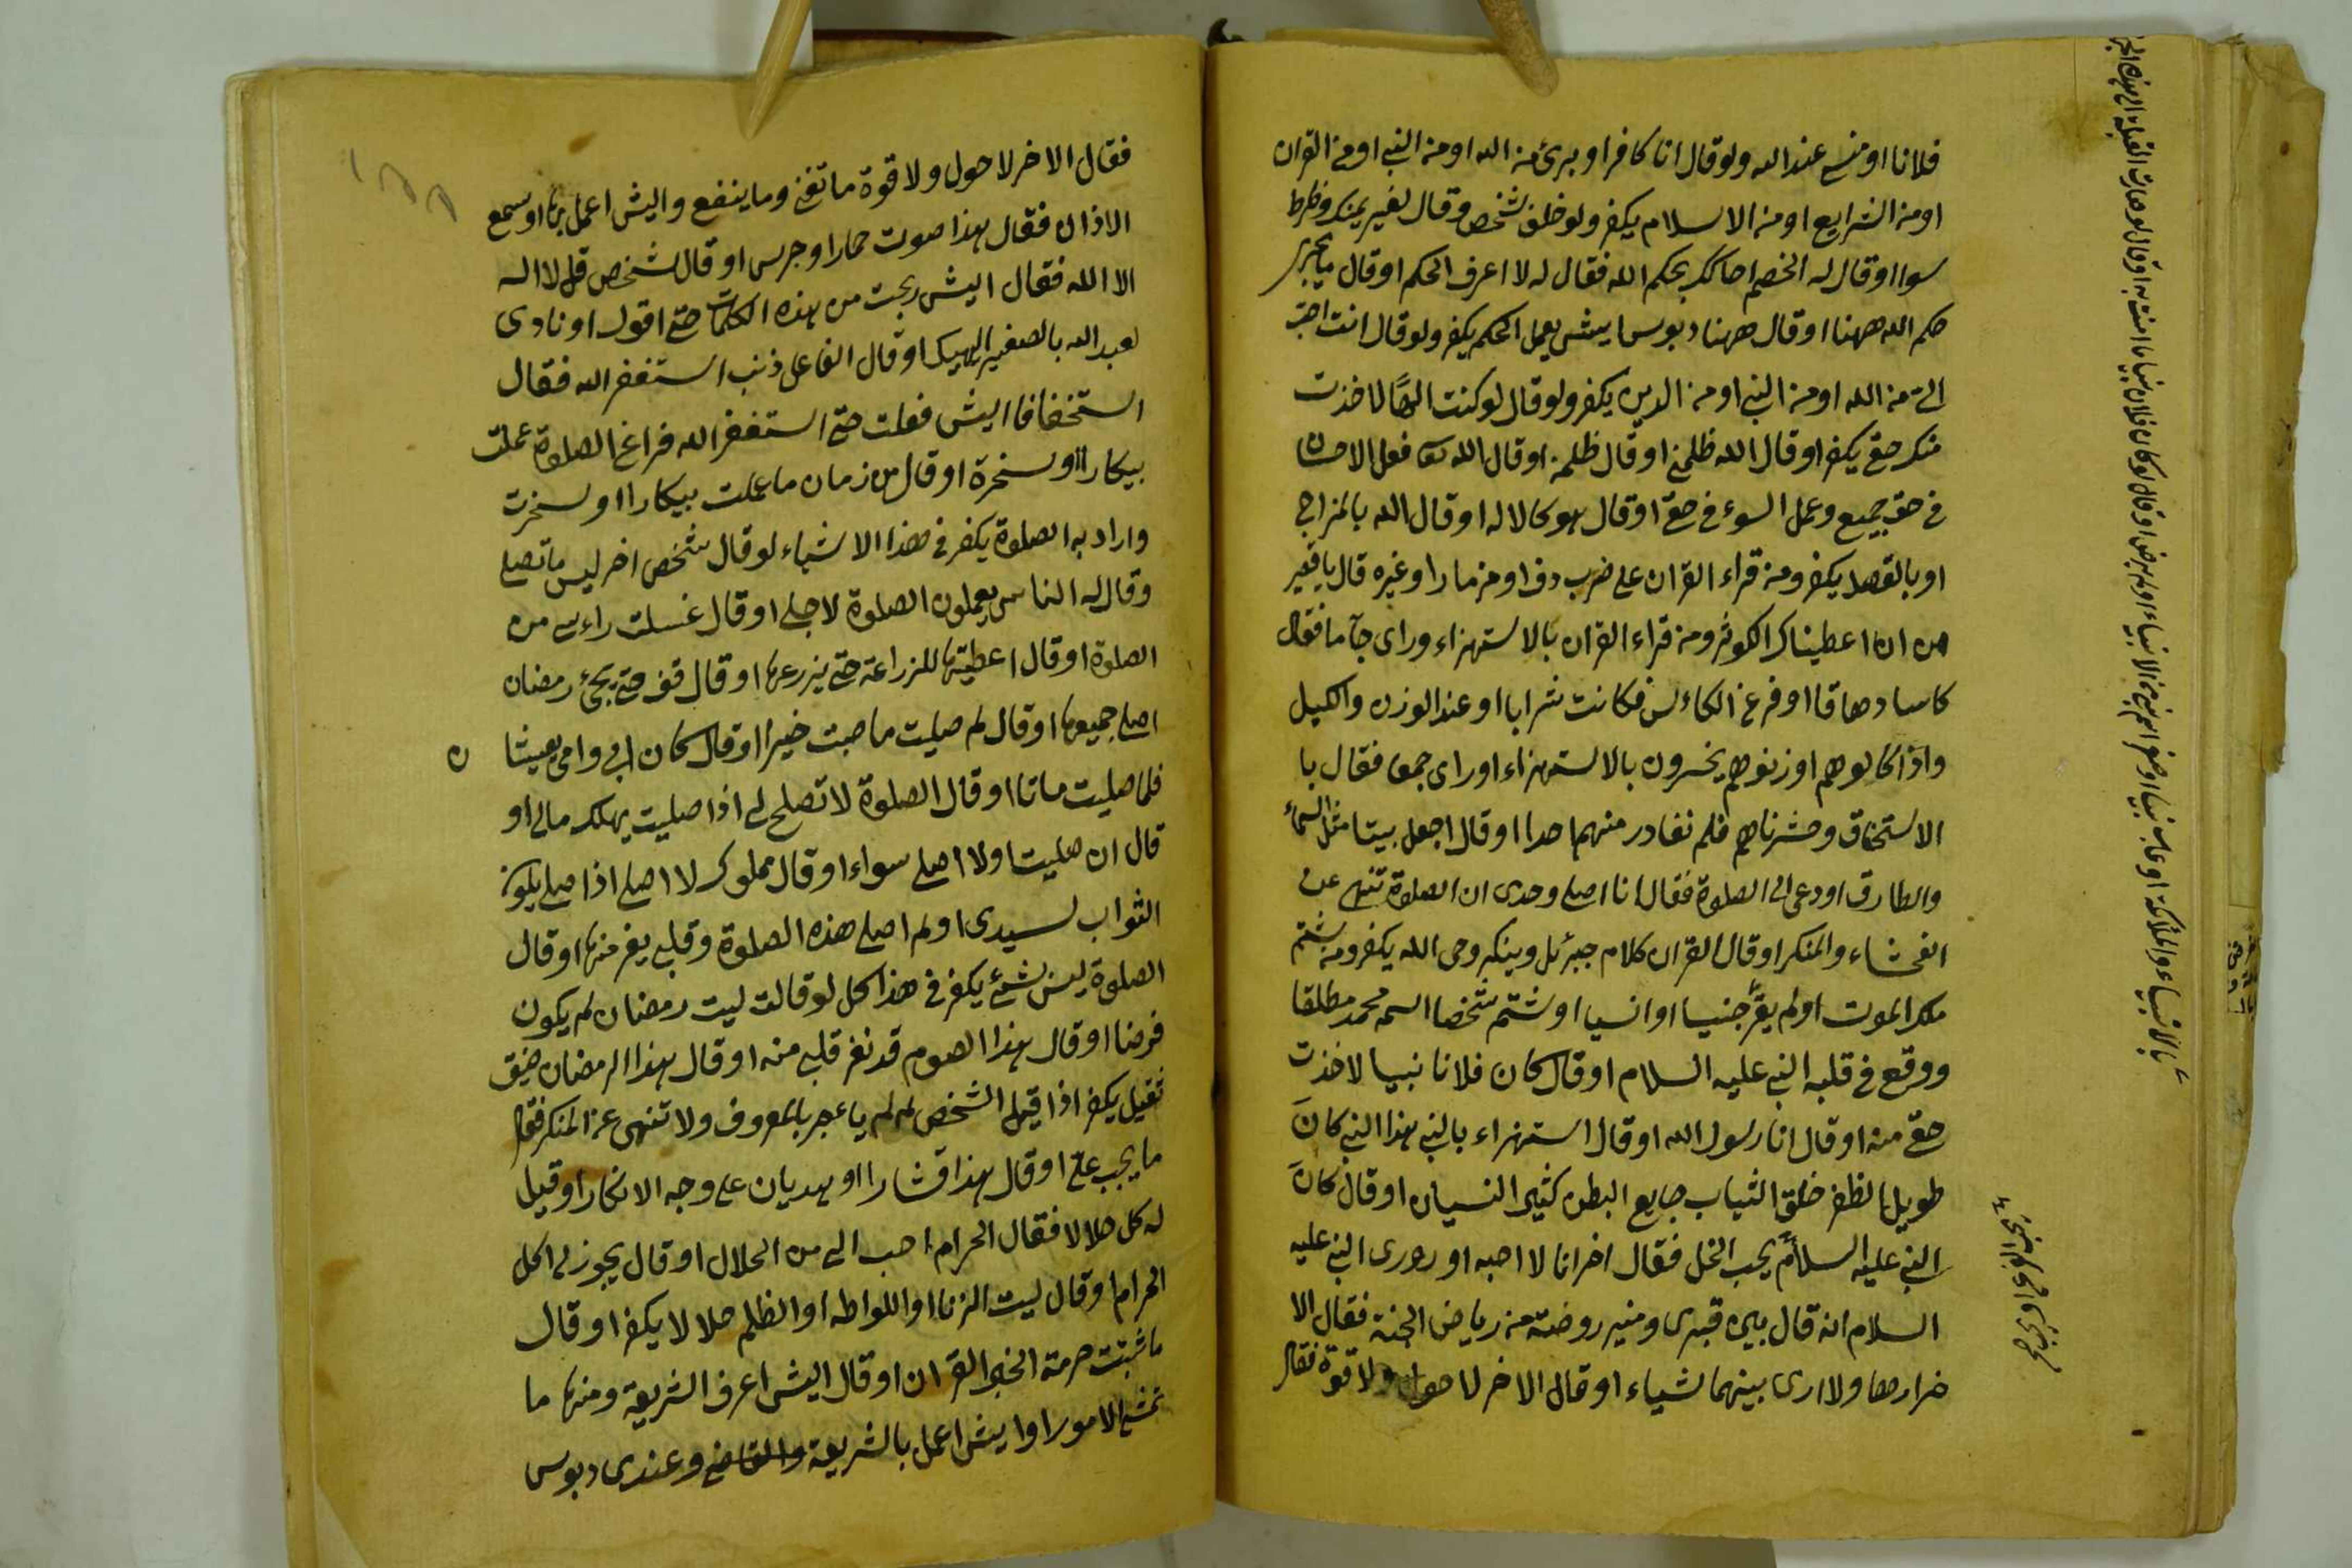 فلانا اومنى عند الله ولو قال انا كافر او برئ من الله او من النبى او من القران
او من الشرايع او من الاسلام يكفر ولو حلف شخص وقال لغير يمينك وظرط
سوا او قال له الخصم احاكمك بحكم الله فقال له لا اعرف الحكم او قال ما يجرى
حكم الله ههنا او قال ههنا دبوس ايش يعمل الحكم يكفر ولو قال انت احب
الى من الله او من النبى او من الدين يكفر ولو قال لو كنت الهًا لاخذت
منك حقى يكفر او قال الله ظلمنى او قال ظلمه او قال الله فعل الاحسان
فى حق جميع وعمل السوء فى حقى او قال هو كالاله او قال الله بالمزاح
او بالقصد يكفر ومن قراء القران على ضرب دف او مزمارا وغيره قال يا فقير
من انا اعطيناك الكوثر ومن قراء القران بالاستهزاء وراى جاما فقال
كاسا دهاقا او فرغ الكاءس فكانت شرابا او عند الوزن والكيل
واذا كالوهم اوزنوهم يخسرون بالاستهزاء او راى جمعا فقال با
الاستخفاف وحشرناهم فلم نغادر منهم احدا او قال اجعل بيتا مثل السماء
والطارق او دعى الى الصلوة فقال انا اصلى وحدى ان الصلوة تنهى عن
الفحشاء والمنكر او قال القران كلام جبرئل وينكر وحى الله يكفر ومن شتم
ملك الموت او لم يقر جنيا او انسيا او شتم شخصا اسمه محمد مطلقا
ووقع فى قلبه النبى عليه السلام او قال كان فلانا نبيا لاخذت
حقى منه او قال انا رسول الله او قال استهزاء بالنبى هذا النبى كان
طويل الظفر خلق الثياب جايع البطن كثير النسيان او قال كان
النبى عليه السلام يحب الخل فقال اخر انا لا احبه او روى النبى عليه
السلام انه قال بين قبرى ومنبر روضة من رياض الجنة فقال الا
خر ارها ولا ارى بينهما شياء او قال الاخر لا حول ولا قوة فقال
فقال الاخر لا حول ولا قوة ما تغنى وما ينفع وايش اعمل بها او سمع
الاذان فقال هذا صوت حمار او جرس او قال لشخص قل لا اله
الا الله فقال ايش ربحت من هذه الكلمات حتى اقول او نادى
لعبد الله بالصغير اليهيك او قال الفاعل ذنب استغفر الله فقال
استخفافا ايش فعلت حتى استغفر الله فراغ الصلوة عملت
بيكارا او سخرة او قال من زمان ما عملت بيكارا او سخرت
واراد به الصلوة يكفر فى هذا الاشياء لو قال شخص اخر ليس ما تصلى
وقال له الناس يعملون الصلوة لاجلى او قال غسلت راءسى من
الصلوة او قال اعطيتها للزراعة حتى يزرعها او قال قف حتى يجئ رمضان
اصلى جميعها او قال لم صليت ما صبت خيرا او قال كان ابى وامى يعيشا
فلما صليت ماتا او قال الصلوة لا تصلح لى اذا صليت يهلك مالى او
قال ان صليت او لا اصلى سواء او قال مملوك لا اصلى اذا صلى يكون
الثواب لسيدى او لم اصلى هذه الصلوة وقلبى يفر منها او قال
الصلوة ليس بشئ يكفر فى هذا كل لو قالت ليت رمضان لم يكون
فرضا او قال هذا الصوم قد نفر قلبى منه او قال هذا الرمضان ضيق
ثقيل يكفر اذا قيل الشخص له لم يا بالمعروف ولا تنهى عن المنكر فقال
ما يجب على او قال هذا قشارا او هديان على وجه الانكار او قيل
له كل حلالا فقال الحرام احب الى من الحلال او قال يجوز لى اكل
الحرام او قال ليت الزنا او اللواطه او الظلم حلالا يكفر او قال
ما ثبتت حرمة الخبر القران او قال ايش اعرف الشريعة ومنها ما
تمشى الامور او ايش اعمل بالشريعة والقاضى وعندى دبوس